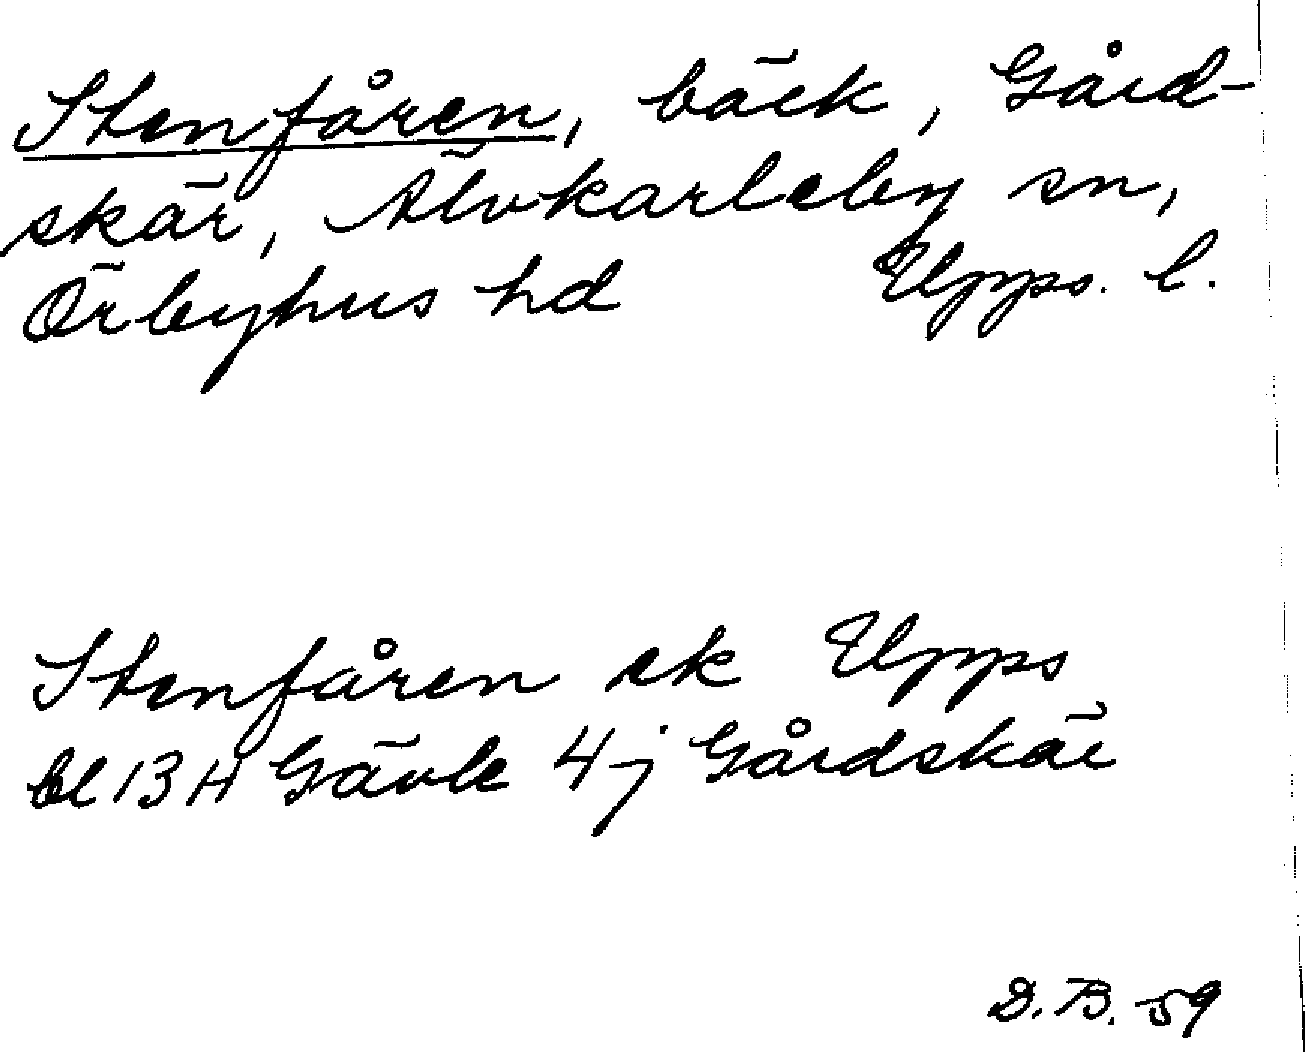 Stenfåren, bäck, Gård-
skär, Älvkarleby sn,
Örbyhus hd Upps. l.
Stenfåren ek Upps
bl 13 H Gävle 4 j Gårdskär
D.B. 59